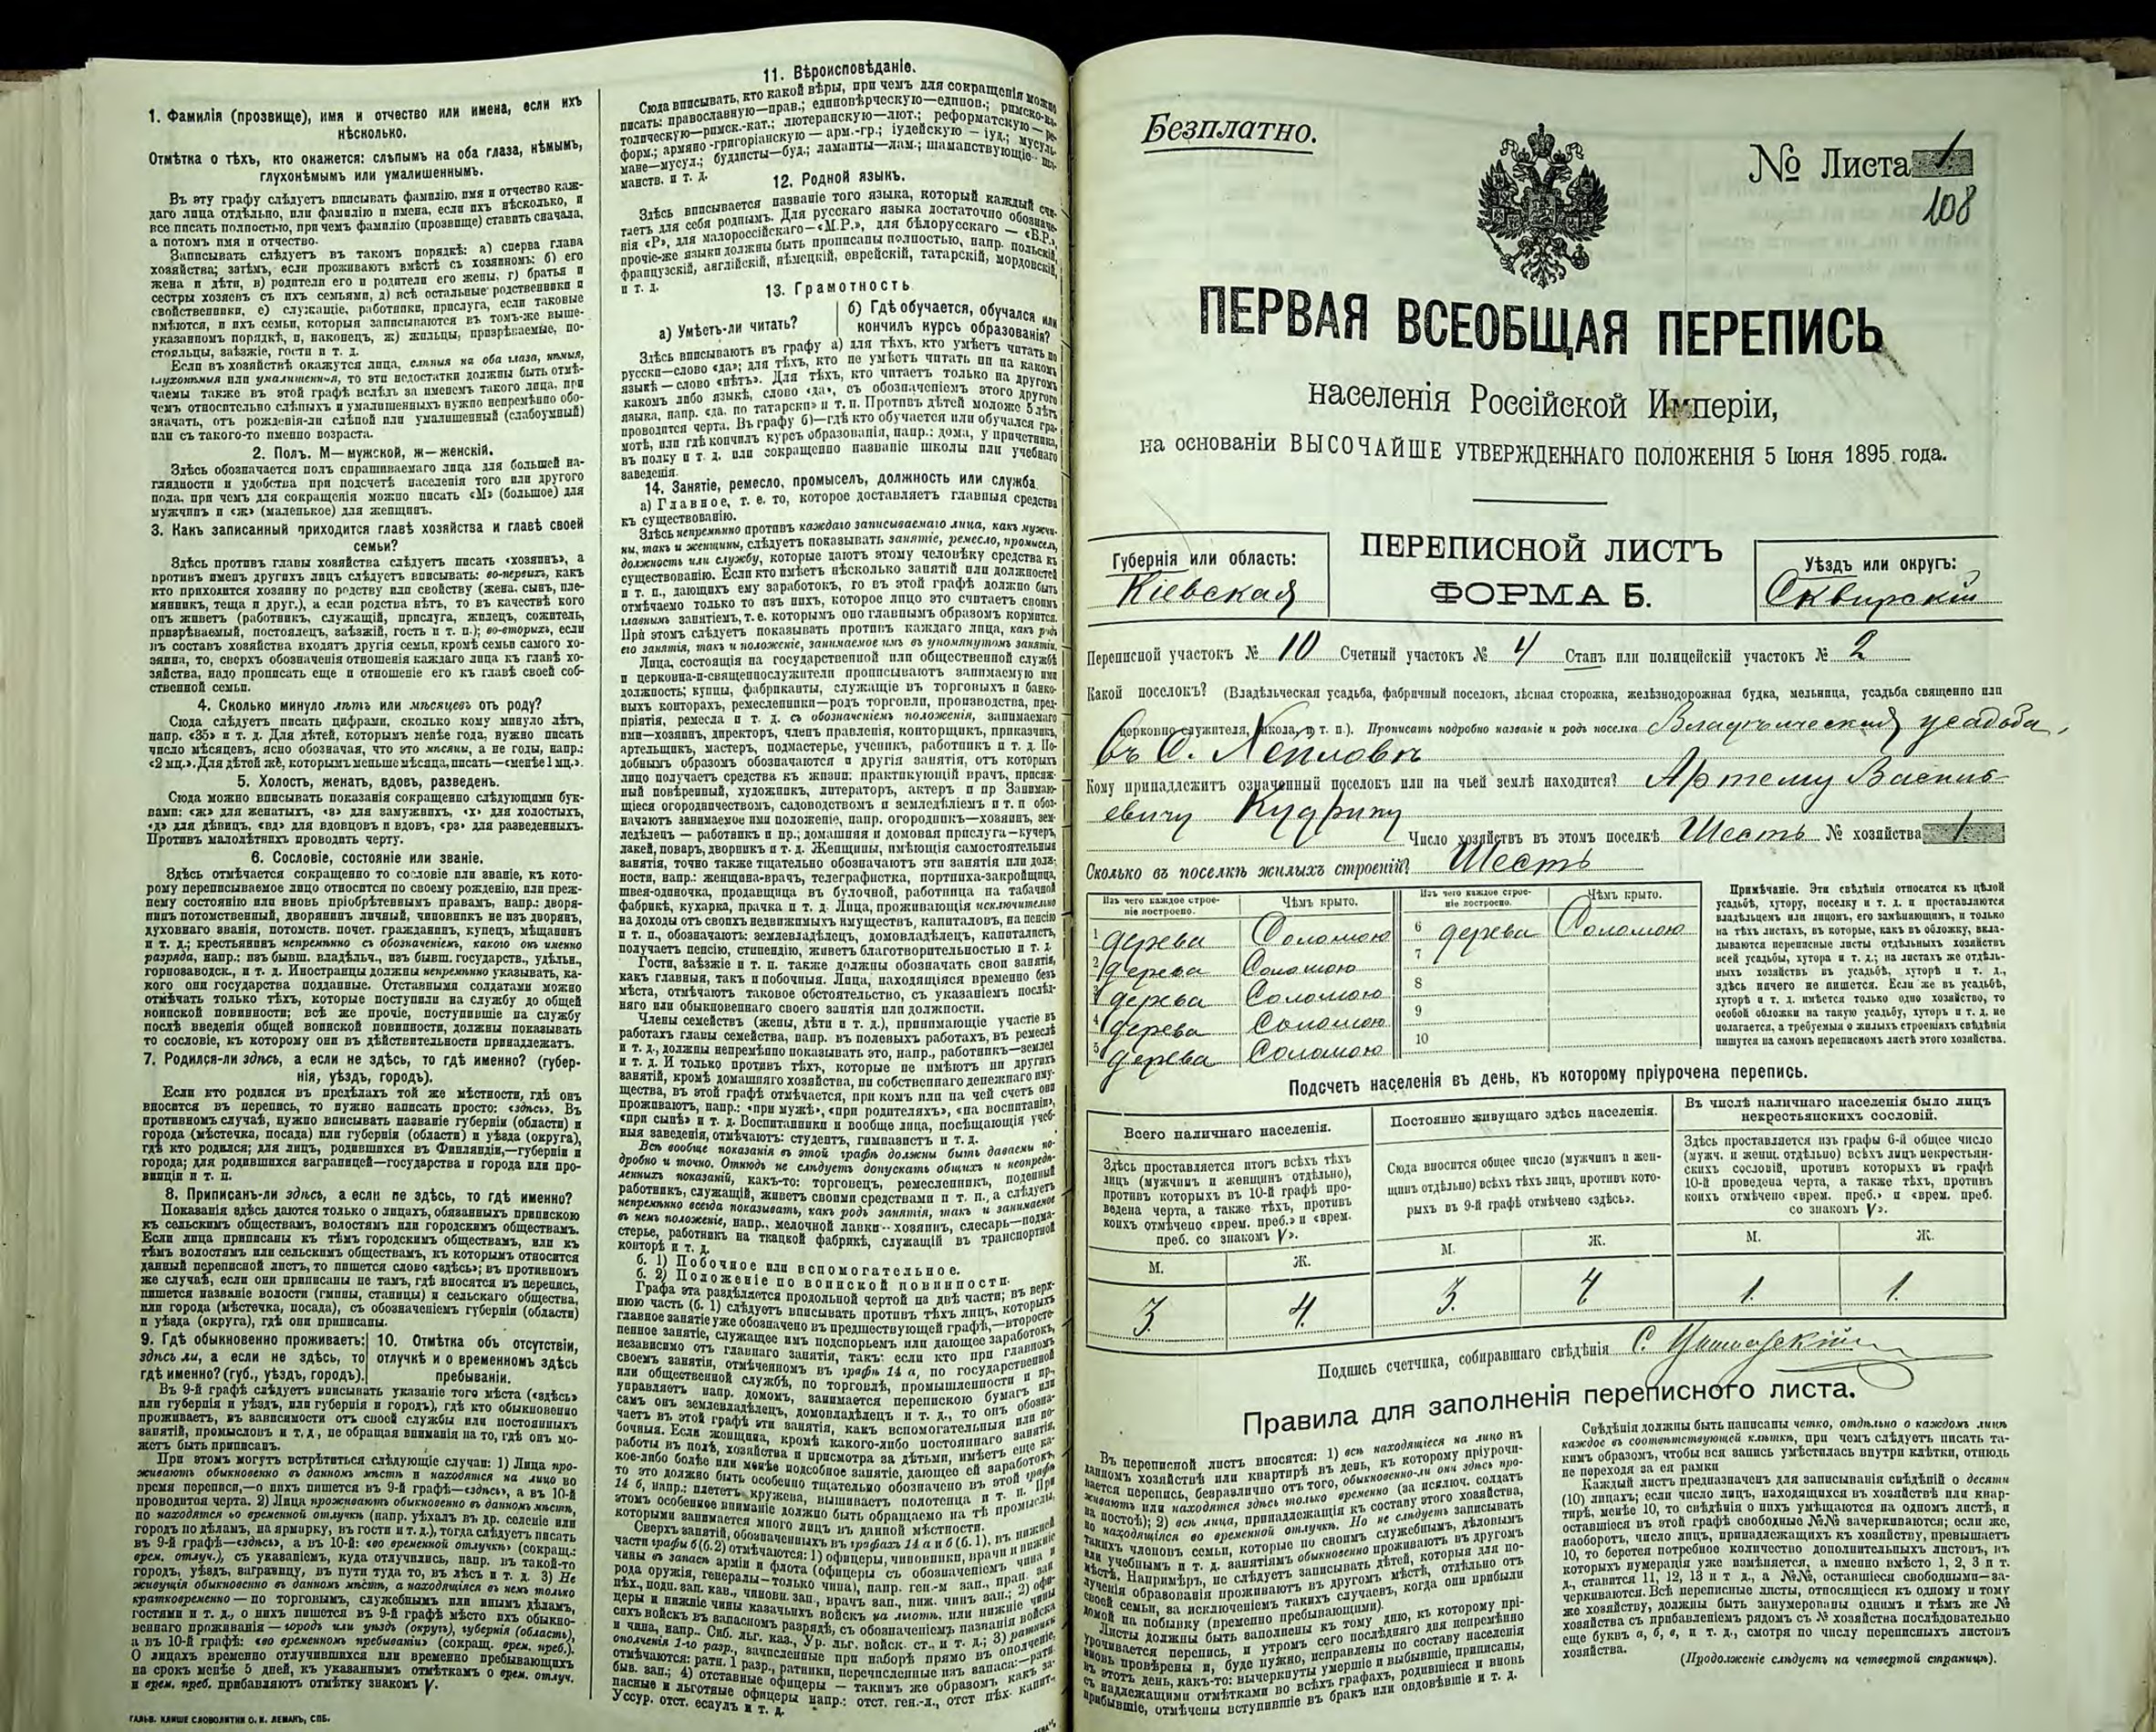 1. Фамилія (прозвище), имя и отчество или имена, если ихъ
нѣсколько.
Отмѣтка о тѣхъ, кто окажется: слѣпымъ на оба глаза, нѣмымъ,
глухонѣмымъ или умалишеннымъ.
Въ эту графу слѣдуетъ вписывать фамилію, имя и отчество каж-
даго лица отдѣльно, или фамилію и имена, если ихъ нѣсколько, и
все писать полностью, при чемъ фамилію (прозвище) ставить сначала,
а потомъ имя и отчество.
Записывать слѣдуетъ въ такомъ порядкѣ: а) сперва глава
хозяйства; затѣмъ, если проживаютъ вмѣстѣ съ хозяиномъ: б) его
жена и дѣти, в) родители его и родители его жены, г) братья и
сестры хозяевъ съ ихъ семьями, д) всѣ остальные родственники и
свойственники, е) служащіе, работники, прислуга, если таковые
имѣются, и ихъ семьи, которыя записываются въ томъ-же выше-
указанномъ порядкѣ, и, наконецъ, ж) жильцы, призрѣваемые, по-
стояльцы, заѣзжіе, гости и т. д.
Если въ хозяйствѣ окажутся лица, слѣпыя на оба глаза, нѣмыя,
глухонѣмыя или умалишенныя, то эти недостатки должны быть отмѣ-
чаемы также въ этой графѣ вслѣдъ за именемъ такого лица, при
чемъ относительно слѣпыхъ и умалишенныхъ нужно непремѣнно обо-
значать, отъ рожденія-ли слѣпой или умалишенный (слабоумный)
или съ такого-то именно возраста.
2. Полъ. М—мужской, ж—женскій.
Здѣсь обозначается полъ спрашиваемаго лица для большей на-
глядности и удобства при подсчетѣ населенія того или другого
пола, при чемъ для сокращенія можно писать «М» (большое) для
мужчинъ и «ж» (маленькое) для женщинъ.
3. Какъ записанный приходится главѣ хозяйства и главѣ своей
семьи?
Здѣсь противъ главы хозяйства слѣдуетъ писать «хозяинъ», а
противъ именъ другихъ лицъ слѣдуетъ вписывать: во-первыхъ, какъ
кто приходится хозяину по родству или свойству (жена, сынъ, пле-
мянникъ, теща и друг.), а если родства нѣтъ, то въ качествѣ кого
онъ живетъ (работникъ, служащій, прислуга, жилецъ, сожитель,
призрѣваемый, постоялецъ, заѣзжій, гость и т. п.); во-вторыхъ, если
въ составъ хозяйства входятъ другія семьи, кромѣ семьи самого хо-
зяина, то, сверхъ обозначенія отношенія каждаго лица къ главѣ хо-
зяйства, надо прописать еще и отношеніе его къ главѣ своей соб-
ственной семьи.
4. Сколько минуло лѣтъ или мѣсяцевъ отъ роду?
Сюда слѣдуетъ писать цифрами, сколько кому минуло лѣтъ,
напр. «35» и т. д. Для дѣтей, которымъ менѣе года, нужно писать
число мѣсяцевъ, ясно обозначая, что это мѣсяцы, а не годы, напр.:
«2 мц.». Для дѣтей же, которымъ меньше мѣсяца, писать—«менѣе 1 мц.».
5. Холостъ, женатъ, вдовъ, разведенъ.
Сюда можно вписывать показанія сокращенно слѣдующими бук-
вами: «ж» для женатыхъ, «з» для замужнихъ, «х» для холостыхъ,
«д» для дѣвицъ, «вд» для вдовцовъ и вдовъ, «рз» для разведенныхъ.
Противъ малолѣтнихъ проводить черту.
6. Сословіе, состояніе или званіе.
Здѣсь отмѣчается сокращенно то сословіе или званіе, къ кото-
рому переписываемое лицо относится по своему рожденію, или преж-
нему состоянію или вновь пріобрѣтеннымъ правамъ, напр.: дворя-
нинъ потомственный, дворянинъ личный, чиновникъ не изъ дворянъ,
духовнаго званія, потомств. почет. гражданинъ, купецъ, мѣщанинъ
и т. д.; крестьянинъ непремѣнно съ обозначеніемъ, какого онъ именно
разряда, напр.: изъ бывш. владѣльч., изъ бывш. государств., удѣльн.,
горнозаводск., и т. д. Иностранцы должны непремѣнно указывать, ка-
кого они государства подданные. Отставными солдатами можно
отмѣчать только тѣхъ, которые поступили на службу до общей
воинской повинности; всѣ же прочіе, поступившіе на службу
послѣ введенія общей воинской повинности, должны показывать
то сословіе, къ которому они въ дѣйствительности принадлежатъ.
7. Родился-ли здѣсь, а если не здѣсь, то гдѣ именно? (губер-
нія, уѣздъ, городъ).
Если кто родился въ предѣлахъ той же мѣстности, гдѣ онъ
вносится въ перепись, то нужно написать просто: «здѣсь». Въ
противномъ случаѣ, нужно вписывать названіе губерніи (области) и
города (мѣстечка, посада) или губерніи (области) и уѣзда (округа),
гдѣ кто родился; для лицъ, родившихся въ Финляндіи,—губерніи и
города; для родившихся заграницей—государства и города или про-
винціи и т. п.
8. Приписанъ-ли здѣсь, а если не здѣсь, то гдѣ именно?
Показанія здѣсь даются только о лицахъ, обязанныхъ припискою
къ сельскимъ обществамъ, волостямъ или городскимъ обществамъ.
Если лица приписаны къ тѣмъ городскимъ обществамъ, или къ
тѣмъ волостямъ или сельскимъ обществамъ, къ которымъ относится
данный переписной листъ, то пишется слово «здѣсь»; въ противномъ
же случаѣ, если они приписаны не тамъ, гдѣ вносятся въ перепись,
пишется названіе волости (гмины, станицы) и сельскаго общества,
или города (мѣстечка, посада), съ обозначеніемъ губерніи (области)
и уѣзда (округа), гдѣ они приписаны.
9. Гдѣ обыкновенно проживаетъ:
здѣсь ли, а если не здѣсь, то
гдѣ именно? (губ., уѣздъ, городъ).
10. Отмѣтка объ отсутствіи,
отлучкѣ и о временномъ здѣсь
пребываніи.
Въ 9-й графѣ слѣдуетъ вписывать указаніе того мѣста («здѣсь»
или губернія и уѣздъ, или губернія и городъ), гдѣ кто обыкновенно
проживаетъ, въ зависимости отъ своей службы или постоянныхъ
занятій, промысловъ и т. д., не обращая вниманія на то, гдѣ онъ мо-
жетъ быть приписанъ.
При этомъ могутъ встрѣтиться слѣдующіе случаи: 1) Лица про-
живаютъ обыкновенно въ данномъ мѣстѣ и находятся на лицо во
время переписи,—о нихъ пишется въ 9-й графѣ—«здѣсь», а въ 10-й
проводится черта. 2) Лица проживаютъ обыкновенно въ данномъ мѣстѣ,
но находятся во временной отлучкѣ (напр. уѣхалъ въ др. селеніе или
городъ по дѣламъ, на ярмарку, въ гости и т. д.), тогда слѣдуетъ писать
въ 9-й графѣ—«здѣсь», а въ 10-й: «во временной отлучкѣ» (сокращ.:
врем. отлуч.), съ указаніемъ, куда отлучились, напр. въ такой-то
городъ, уѣздъ, заграницу, въ пути туда то, въ лѣсъ и т. д. 3) Не
живущія обыкновенно въ данномъ мѣстѣ, а находящіяся въ немъ только
кратковременно — по торговымъ, служебнымъ или инымъ дѣламъ,
гостями и т. д., о нихъ пишется въ 9-й графѣ мѣсто ихъ обыкно-
веннаго проживанія — городъ или уѣздъ (округъ), губернія (область),
а въ 10-й графѣ: «во временномъ пребываніи» (сокращ. врем. преб.).
О лицахъ временно отлучившихся или временно пребывающихъ
на срокъ менѣе 5 дней, къ указаннымъ отмѣткамъ о врем. отлуч.
и врем. преб. прибавляютъ отмѣтку знакомъ V.
ГАЛЬВ. КЛИШЕ СЛОВОЛИТНИ О. И. ЛЕМАНЪ, СПБ.
11. Вѣроисповѣданіе.
Сюда вписывать, кто какой вѣры, при чемъ для сокращенія можно
писать: православную—прав.; единовѣрческую—единов.; римско-ка-
толическую—римск.-кат.; лютеранскую—лют.; реформатскую—ре-
форм.; армяно-григоріанскую—арм.-гр.; іудейскую—іуд.; мусуль-
мане—мусул.; буддисты—буд.; ламаиты—лам.; шаманствующіе—ша-
манств. и т. д.
12. Родной языкъ.
Здѣсь вписывается названіе того языка, который каждый счи-
таетъ для себя роднымъ. Для русскаго языка достаточно обозначе-
нія «Р», для малороссійскаго—«М.Р.», для бѣлорусскаго — «Б.Р.»,
прочіе-же языки должны быть прописаны полностью, напр. польскій,
французскій, англійскій, нѣмецкій, еврейскій, татарскій, мордовскій,
и т. д.
13. Грамотность
а) Умѣетъ-ли читать?
б) Гдѣ обучается, обучался или
кончилъ курсъ образованія?
Здѣсь вписываютъ въ графу а) для тѣхъ, кто умѣетъ читать по
русски—слово «да»; для тѣхъ, кто не умѣетъ читать ни на какомъ
языкѣ—слово «нѣтъ». Для тѣхъ, кто читаетъ только на другомъ
какомъ либо языкѣ, слово «да», съ обозначеніемъ этого другого
языка, напр. «да. по татарски» и т. п. Противъ дѣтей моложе 5 лѣтъ
проводится черта. Въ графу б)—гдѣ кто обучается или обучался гра-
мотѣ, или гдѣ кончилъ курсъ образованія, напр.: дома, у причетника,
въ полку и т. д. или сокращенно названіе школы или учебнаго
заведенія.
14. Занятіе, ремесло, промыселъ, должность или служба
а) Главное, т. е. то, которое доставляетъ главныя средства
къ существованію.
Здѣсь непремѣнно противъ каждаго записываемаго лица, какъ мужчи-
ны, такъ и женщины, слѣдуетъ показывать занятіе, ремесло, промыселъ,
должность или службу, которые даютъ этому человѣку средства къ
существованію. Если кто имѣетъ нѣсколько занятій или должностей
и т. п., дающихъ ему заработокъ, то въ этой графѣ должно быть
отмѣчаемо только то изъ нихъ, которое лицо это считаетъ своимъ
главнымъ занятіемъ, т. е. которымъ оно главнымъ образомъ кормится.
При этомъ слѣдуетъ показывать противъ каждаго лица, какъ родъ
его занятія, такъ и положеніе, занимаемое имъ въ упомянутомъ занятіи.
Лица, состоящія на государственной или общественной службѣ
и церковно-и-священнослужители прописываютъ занимаемую ими
должность; купцы, фабриканты, служащіе въ торговыхъ и банко-
выхъ конторахъ, ремесленники—родъ торговли, производства, пред-
пріятія, ремесла и т. д. съ обозначеніемъ положенія, занимаемаго
ими—хозяинъ, директоръ, членъ правленія, конторщикъ, приказчикъ,
артельщикъ, мастеръ, подмастерье, ученикъ, работникъ и т. д. По-
добнымъ образомъ обозначаются и другія занятія, отъ которыхъ
лицо получаетъ средства къ жизни: практикующій врачъ, присяж-
ный повѣренный, художникъ, литераторъ, актеръ и пр. Занимаю-
щіеся огородничествомъ, садоводствомъ и земледѣліемъ и т. п. обоз-
начаютъ занимаемое ими положеніе, напр. огородникъ—хозяинъ, зем-
ледѣлецъ — работникъ и пр.; домашняя и домовая прислуга—кучеръ,
лакей, поваръ, дворникъ и т. д. Женщины, имѣющія самостоятельныя
занятія, точно также тщательно обозначаютъ эти занятія или долж-
ности, напр.: женщина-врачъ, телеграфистка, портниха-закройщица,
швея-одиночка, продавщица въ булочной, работница на табачной
фабрикѣ, кухарка, прачка и т. д. Лица, проживающія исключительно
на доходы отъ своихъ недвижимыхъ имуществъ, капиталовъ, на пенсію
и т. п., обозначаютъ: землевладѣлецъ, домовладѣлецъ, капиталистъ,
получаетъ пенсію, стипендію, живетъ благотворительностью и т. д.
Гости, заѣзжіе и т. п. также должны обозначать свои занятія,
какъ главныя, такъ и побочныя. Лица, находящіяся временно безъ
мѣста, отмѣчаютъ таковое обстоятельство, съ указаніемъ послѣд-
няго или обыкновеннаго своего занятія или должности.
Члены семействъ (жены, дѣти и т. д.), принимающіе участіе въ
работахъ главы семейства, напр. въ полевыхъ работахъ, въ ремеслѣ
и т. д., должны непремѣнно показывать это, напр., работникъ—землед.
и т. д. И только противъ тѣхъ, которые не имѣютъ ни другихъ
занятій, кромѣ домашняго хозяйства, ни собственнаго денежнаго иму-
щества, въ этой графѣ отмѣчается, при комъ или на чей счетъ они
проживаютъ, напр.: «при мужѣ», «при родителяхъ», «на воспитаніи»,
«при сынѣ» и т. д. Воспитанники и вообще лица, посѣщающія учеб-
ныя заведенія, отмѣчаютъ: студентъ, гимназистъ и т. д.
Всѣ вообще показанія въ этой графѣ должны быть даваемы по-
дробно и точно. Отнюдь не слѣдуетъ допускать общихъ и неопредѣ-
ленныхъ показаній, какъ-то: торговецъ, ремесленникъ, поденный
работникъ, служащій, живетъ своими средствами и т. п., а слѣдуетъ
непремѣнно всегда показывать, какъ родъ занятія, такъ и занимаемое
въ немъ положеніе, напр., мелочной лавки—хозяинъ, слесарь—подма-
стерье, работникъ на ткацкой фабрикѣ, служащій въ транспортной
конторѣ и т. д.
б. 1) Побочное или вспомогательное.
б. 2) Положеніе по воинской повинности.
Графа эта раздѣляется продольной чертой на двѣ части; въ верх-
нюю часть (б. 1) слѣдуетъ вписывать противъ тѣхъ лицъ, которыхъ
главное занятіе уже обозначено въ предшествующей графѣ,—второсте-
пенное занятіе, служащее имъ подспорьемъ или дающее заработокъ,
независимо отъ главнаго занятія, такъ: если кто при главномъ
своемъ занятіи, отмѣченномъ въ графѣ 14 а, по государственной
или общественной службѣ, по торговлѣ, промышленности и пр.,
управляетъ напр. домомъ, занимается перепискою бумагъ или
самъ онъ землевладѣлецъ, домовладѣлецъ и т. д., то онъ обозна-
чаетъ въ этой графѣ эти занятія, какъ вспомогательныя или по-
бочныя. Если женщина, кромѣ какого-либо постояннаго занятія,
работы въ полѣ, хозяйства и присмотра за дѣтьми, имѣетъ еще ка-
кое-либо болѣе или менѣе подсобное занятіе, дающее ей заработокъ,
то это должно быть особенно тщательно обозначено въ этой графѣ
14 б, напр.: плететъ кружева, вышиваетъ полотенца и т. п. При
этомъ особенное вниманіе должно быть обращаемо на тѣ промыслы,
которыми занимается много лицъ въ данной мѣстности.
Сверхъ занятій, обозначенныхъ въ графахъ 14 а и б (б. 1), въ нижней
части графы б (б. 2) отмѣчаются: 1) офицеры, чиновники, врачи и нижніе
чины въ запасѣ арміи и флота (офицеры съ обозначеніемъ чина и
рода оружія, генералы—только чина), напр. ген.-м зап., прап. зап
пѣх., подп. зап. кав., чиновн. зап., врачъ зап., ниж. чинъ зап.; 2) офи-
церы и нижніе чины казачьихъ войскъ на льготѣ, или нижніе чины
сихъ войскъ въ запасномъ разрядѣ, съ обозначеніемъ названія войска
и чина, напр.. Сиб. льг. каз., Ур. льг. войск. ст., и т. д.; 3) ратники
ополченія 1-го разр., зачисленные при наборѣ прямо въ ополченіе,
отмѣчаются: ратн. 1 разр., ратники, перечисленные изъ запаса:—ратн.
быв. зап.; 4) отставные офицеры — такимъ же образомъ какъ за-
пасные и льготные офицеры напр.: отст. ген.-л., отст пѣх. капит.,
Уссур. отст. есаулъ и т. д.
Безплатно.
№ Листа 1
108
ПЕРВАЯ ВСЕОБЩАЯ ПЕРЕПИСЬ
населенія Россійской Имперіи,
на основаніи ВЫСОЧАЙШЕ УТВЕРЖДЕННАГО ПОЛОЖЕНІЯ 5 Іюня 1895 года.
Губернія или область:
Кіевская
ПЕРЕПИСНОЙ ЛИСТЪ
ФОРМА Б.
Уѣздъ или округъ:
Сквирскій
Переписной участокъ № 10 Счетный участокъ № 4 Станъ или полицейскій участокъ № 2
Какой поселокъ? (Владѣльческая усадьба, фабричный поселокъ, лѣсная сторожка, желѣзнодорожная будка, мельница, усадьба священно или
церковно-служителя, школа, и т. п.). Прописать подробно названіе и родъ поселка Владѣльческая усадьба,
въ С.
Кому принадлежитъ означенный поселокъ или на чьей землѣ находится? Артему Василь-
евичу Кудрину
Число хозяйствъ въ этомъ поселкѣ Шесть № хозяйства 1
Сколько въ поселкѣ жилыхъ строеній? Шесть
Изъ чего каждое строе-
ніе построено.
Чѣмъ крыто.
Изъ чего каждое строе-
ніе построено.
Чѣмъ крыто.
1 дерева Соломою 6 дерева Соломою
2 дерева Соломою 7
3 дерева Соломою 8
4 дерева Соломою 9
5 дерева Соломою 10
Примѣчаніе. Эти свѣдѣнія относятся къ цѣлой
усадьбѣ, хутору, поселку и т. д. и проставляются
владѣльцемъ или лицомъ, его замѣняющимъ, и только
на тѣхъ листахъ, въ которые, какъ въ обложку, вкла-
дываются переписные листы отдѣльныхъ хозяйствъ
всей усадьбы, хутора и т. д.; на листахъ же отдѣль-
ныхъ хозяйствъ въ усадьбѣ, хуторѣ и т. д.,
здѣсь ничего не пишется. Если же въ усадьбѣ,
хуторѣ и т. д. имѣется только одно хозяйство, то
особой обложки на такую усадьбу, хуторъ и т. д. не
полагается, а требуемыя о жилыхъ строеніяхъ свѣдѣнія
пишутся на самомъ переписномъ листѣ этого хозяйства.
Подсчетъ населенія въ день, къ которому пріурочена перепись.
Всего наличнаго населенія.
Здѣсь проставляется итогъ всѣхъ тѣхъ
лицъ (мужчинъ и женщинъ отдѣльно),
противъ которыхъ въ 10-й графѣ про-
ведена черта, а также тѣхъ, противъ
коихъ отмѣчено «врем. преб.» и «врем.
преб. со знакомъ V».
Постоянно живущаго здѣсь населенія.
Сюда вносится общее число (мужчинъ и жен-
щинъ отдѣльно) всѣхъ тѣхъ лицъ, противъ кото-
рыхъ въ 9-й графѣ отмѣчено «здѣсь».
Въ числѣ наличнаго населенія было лицъ
некрестьянскихъ сословій.
Здѣсь проставляется изъ графы 6-й общее число
(мужч. и женщ. отдѣльно) всѣхъ лицъ некрестьян-
скихъ сословій, противъ которыхъ въ графѣ
10-й проведена черта, а также тѣхъ, противъ
коихъ отмѣчено «врем. преб.» и «врем. преб.
со знакомъ V».
М. Ж. М. Ж. М. Ж.
3. 4. 3. 4 1. 1.
Подпись счетчика, собиравшаго свѣдѣнія С.
Правила для заполненія переписного листа.
Въ переписной листъ вносятся: 1) всѣ находящіеся на лицо въ
данномъ хозяйствѣ или квартирѣ въ день, къ которому пріурочи-
вается перепись, безразлично отъ того, обыкновенно-ли они здѣсь про-
живаютъ или находятся здѣсь только временно (за исключ. солдатъ
на постоѣ); 2) всѣ лица, принадлежащія къ составу этого хозяйства,
но находящіяся во временной отлучкѣ. Но не слѣдуетъ записывать
такихъ членовъ семьи, которые по своимъ служебнымъ, дѣловымъ
или учебнымъ и т. д. занятіямъ обыкновенно проживаютъ въ другомъ
мѣстѣ. Напримѣръ, не слѣдуетъ записывать дѣтей, которыя для по-
лученія образованія проживаютъ въ другомъ мѣстѣ, отдѣльно отъ
своей семьи, за исключеніемъ такихъ случаевъ, когда они прибыли
домой на побывку (временно пребывающими).
Листы должны быть заполнены къ тому дню, къ которому прі-
урочивается перепись, и утромъ сего послѣдняго дня непремѣнно
вновь провѣрены и, буде нужно, исправлены по составу населенія
въ этотъ день, какъ-то: вычеркнуты умершіе и выбывшіе, приписаны,
съ надлежащими отмѣтками во всѣхъ графахъ, родившіеся и вновь
прибывшіе, отмѣчены вступившіе въ бракъ или овдовѣвшіе и т. д.
Свѣдѣнія должны быть написаны четко, отдѣльно о каждомъ лицѣ
каждое въ соотвѣтствующей клѣткѣ, при чемъ слѣдуетъ писать та-
кимъ образомъ, чтобы вся запись умѣстилась внутри клѣтки, отнюдь
не переходя за ея рамки
Каждый листъ предназначенъ для записыванія свѣдѣній о десяти
(10) лицахъ; если число лицъ, находящихся въ хозяйствѣ или квар-
тирѣ, менѣе 10, то свѣдѣнія о нихъ умѣщаются на одномъ листѣ, и
оставшіеся въ этой графѣ свободные №№ зачеркиваются; если же,
наоборотъ, число лицъ, принадлежащихъ къ хозяйству, превышаетъ
10, то берется потребное количество дополнительныхъ листовъ, въ
которыхъ нумерація уже измѣняется, а именно вмѣсто 1, 2, 3 и т.
д., ставится 11, 12, 13 и т. д., а №№, оставшіеся свободными—за-
черкиваются. Всѣ переписные листы, относящіеся къ одному и тому
же хозяйству, должны быть занумерованы однимъ и тѣмъ же №
хозяйства съ прибавленіемъ рядомъ съ № хозяйства послѣдовательно
еще буквъ а, б, в, и т. д., смотря по числу переписныхъ листовъ
хозяйства.
(Продолженіе слѣдуетъ на четвертой страницѣ).